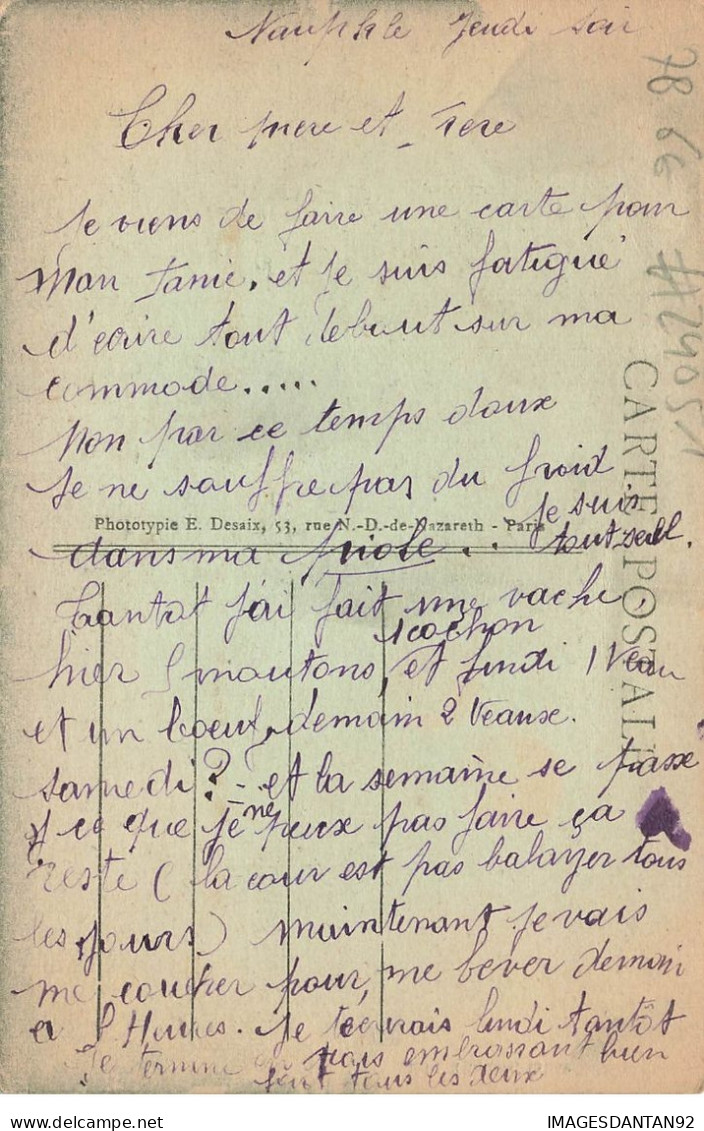 Jeudi soir
Cher mere et frere
Je viens de faire une carte pour
Mon et je suis fatigué
d'ecrire tout debout sur ma
commode.....
Mon par ce temps doux
Je ne souffre pas du froid
Phototypie E. Desaix, 53, rue N.-D.-de-Nazareth - Paris
dans ma piole.. Je suis
tout seul.
Tantot J'ai fait une vache,
hier 5 moutons, 1 cochon et lundi 1 Veau
et un boeuf, demain 2 Veaux.
samedi? - et la semaine se passe
ce que je ne peux pas faire ça
reste (la cour est pas balayer tous
les jours) Maintenant Je vais
me coucher pour, me lever demain
a Hures. Je lundi tantôt
Je termine en embrassant bien
fort tous les deux
CARTE POSTALE
78 66
IMAGESDANTAN92